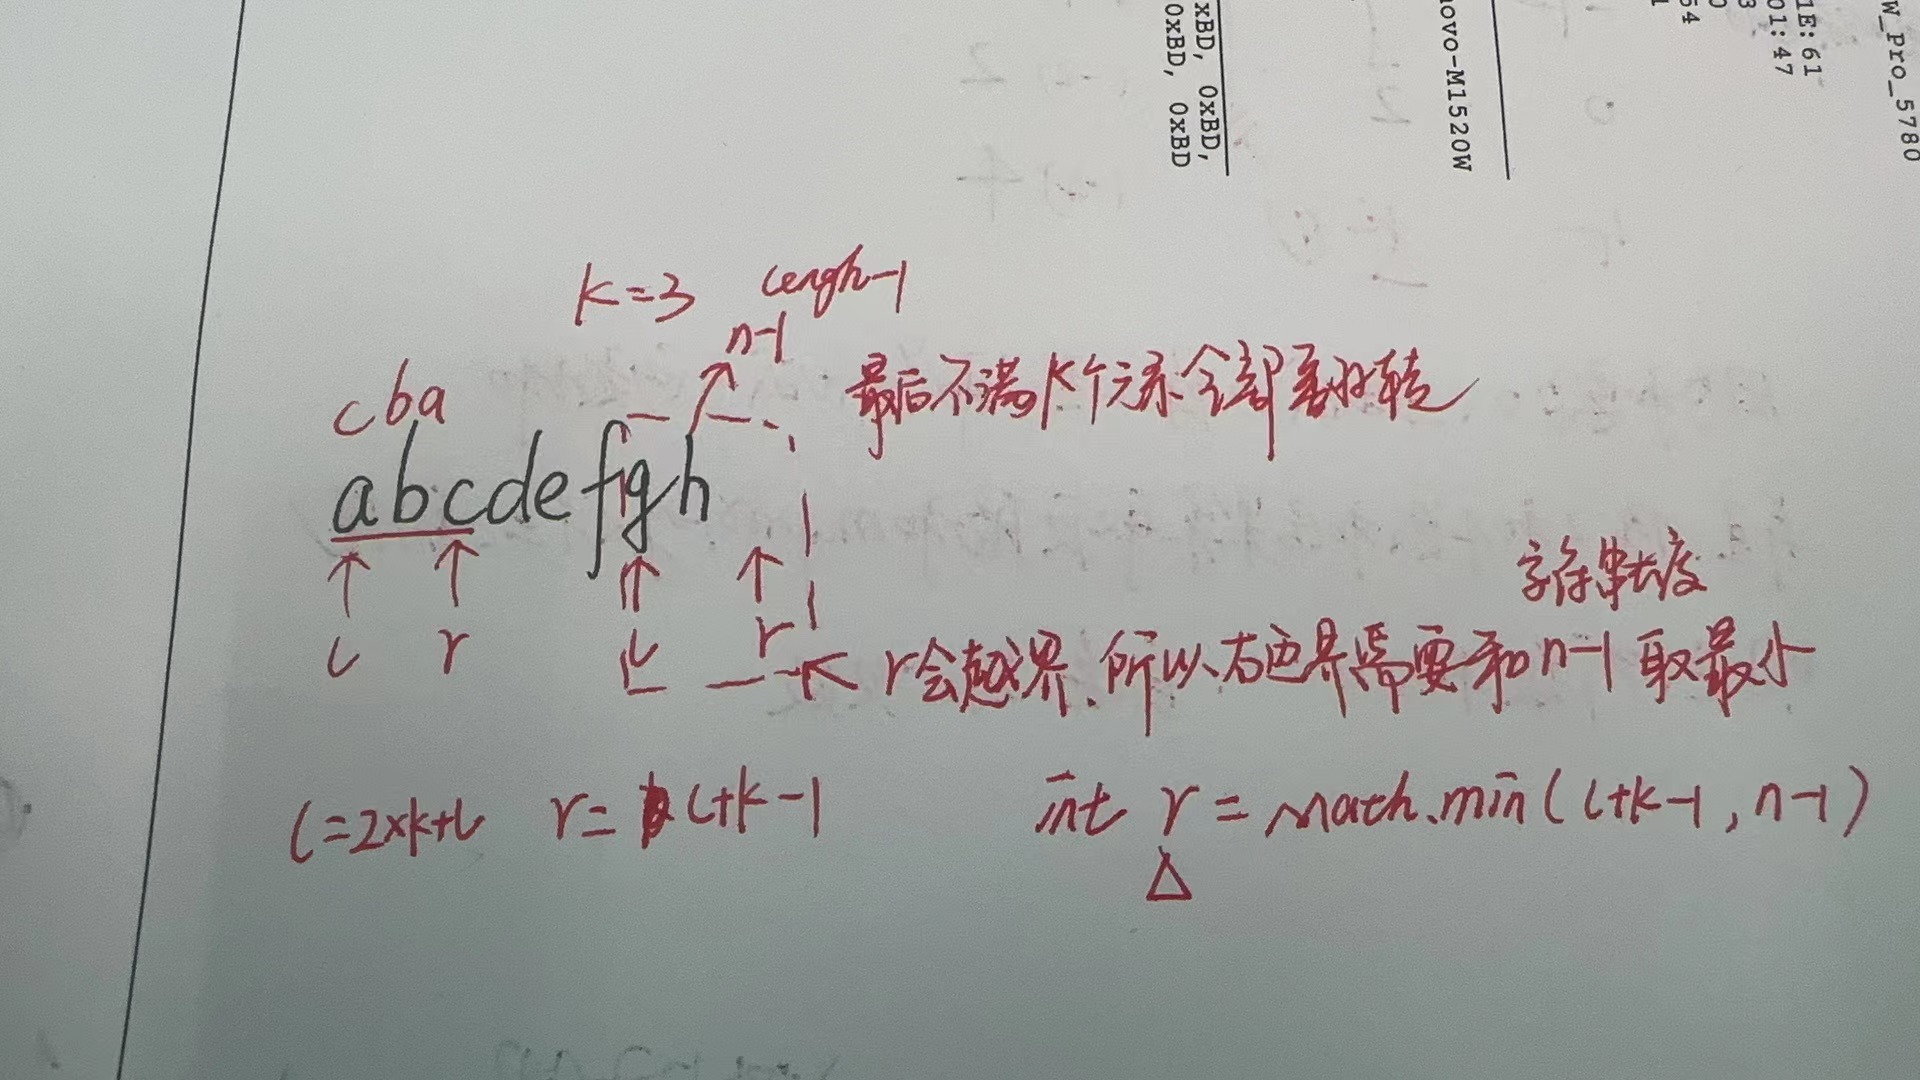 W_Pro_5780
1E:61
01:47
3
0
54
1
novo-M1520W
xBD, 0xBD,
0xBD, 0xBD
k=3 lengh-1
n-1
最后不满k个元素全部要翻转
cba
abcdefgh
字符串长度
l r l r r会越界.所以右边界需要和n-1取最小
l=2xk+l r=l+k-1 int r = math.min(l+k-1, n-1)